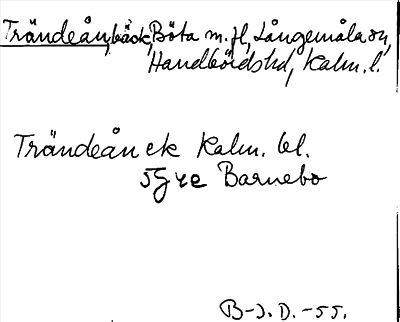 Trändeån, bäck, Böta m. fl, Långemåla sn,
Handbörds hd, Kalm. l.
Trändeån ek Kalm. bl.
5G 4e Barnebo
B-J. D. -55.